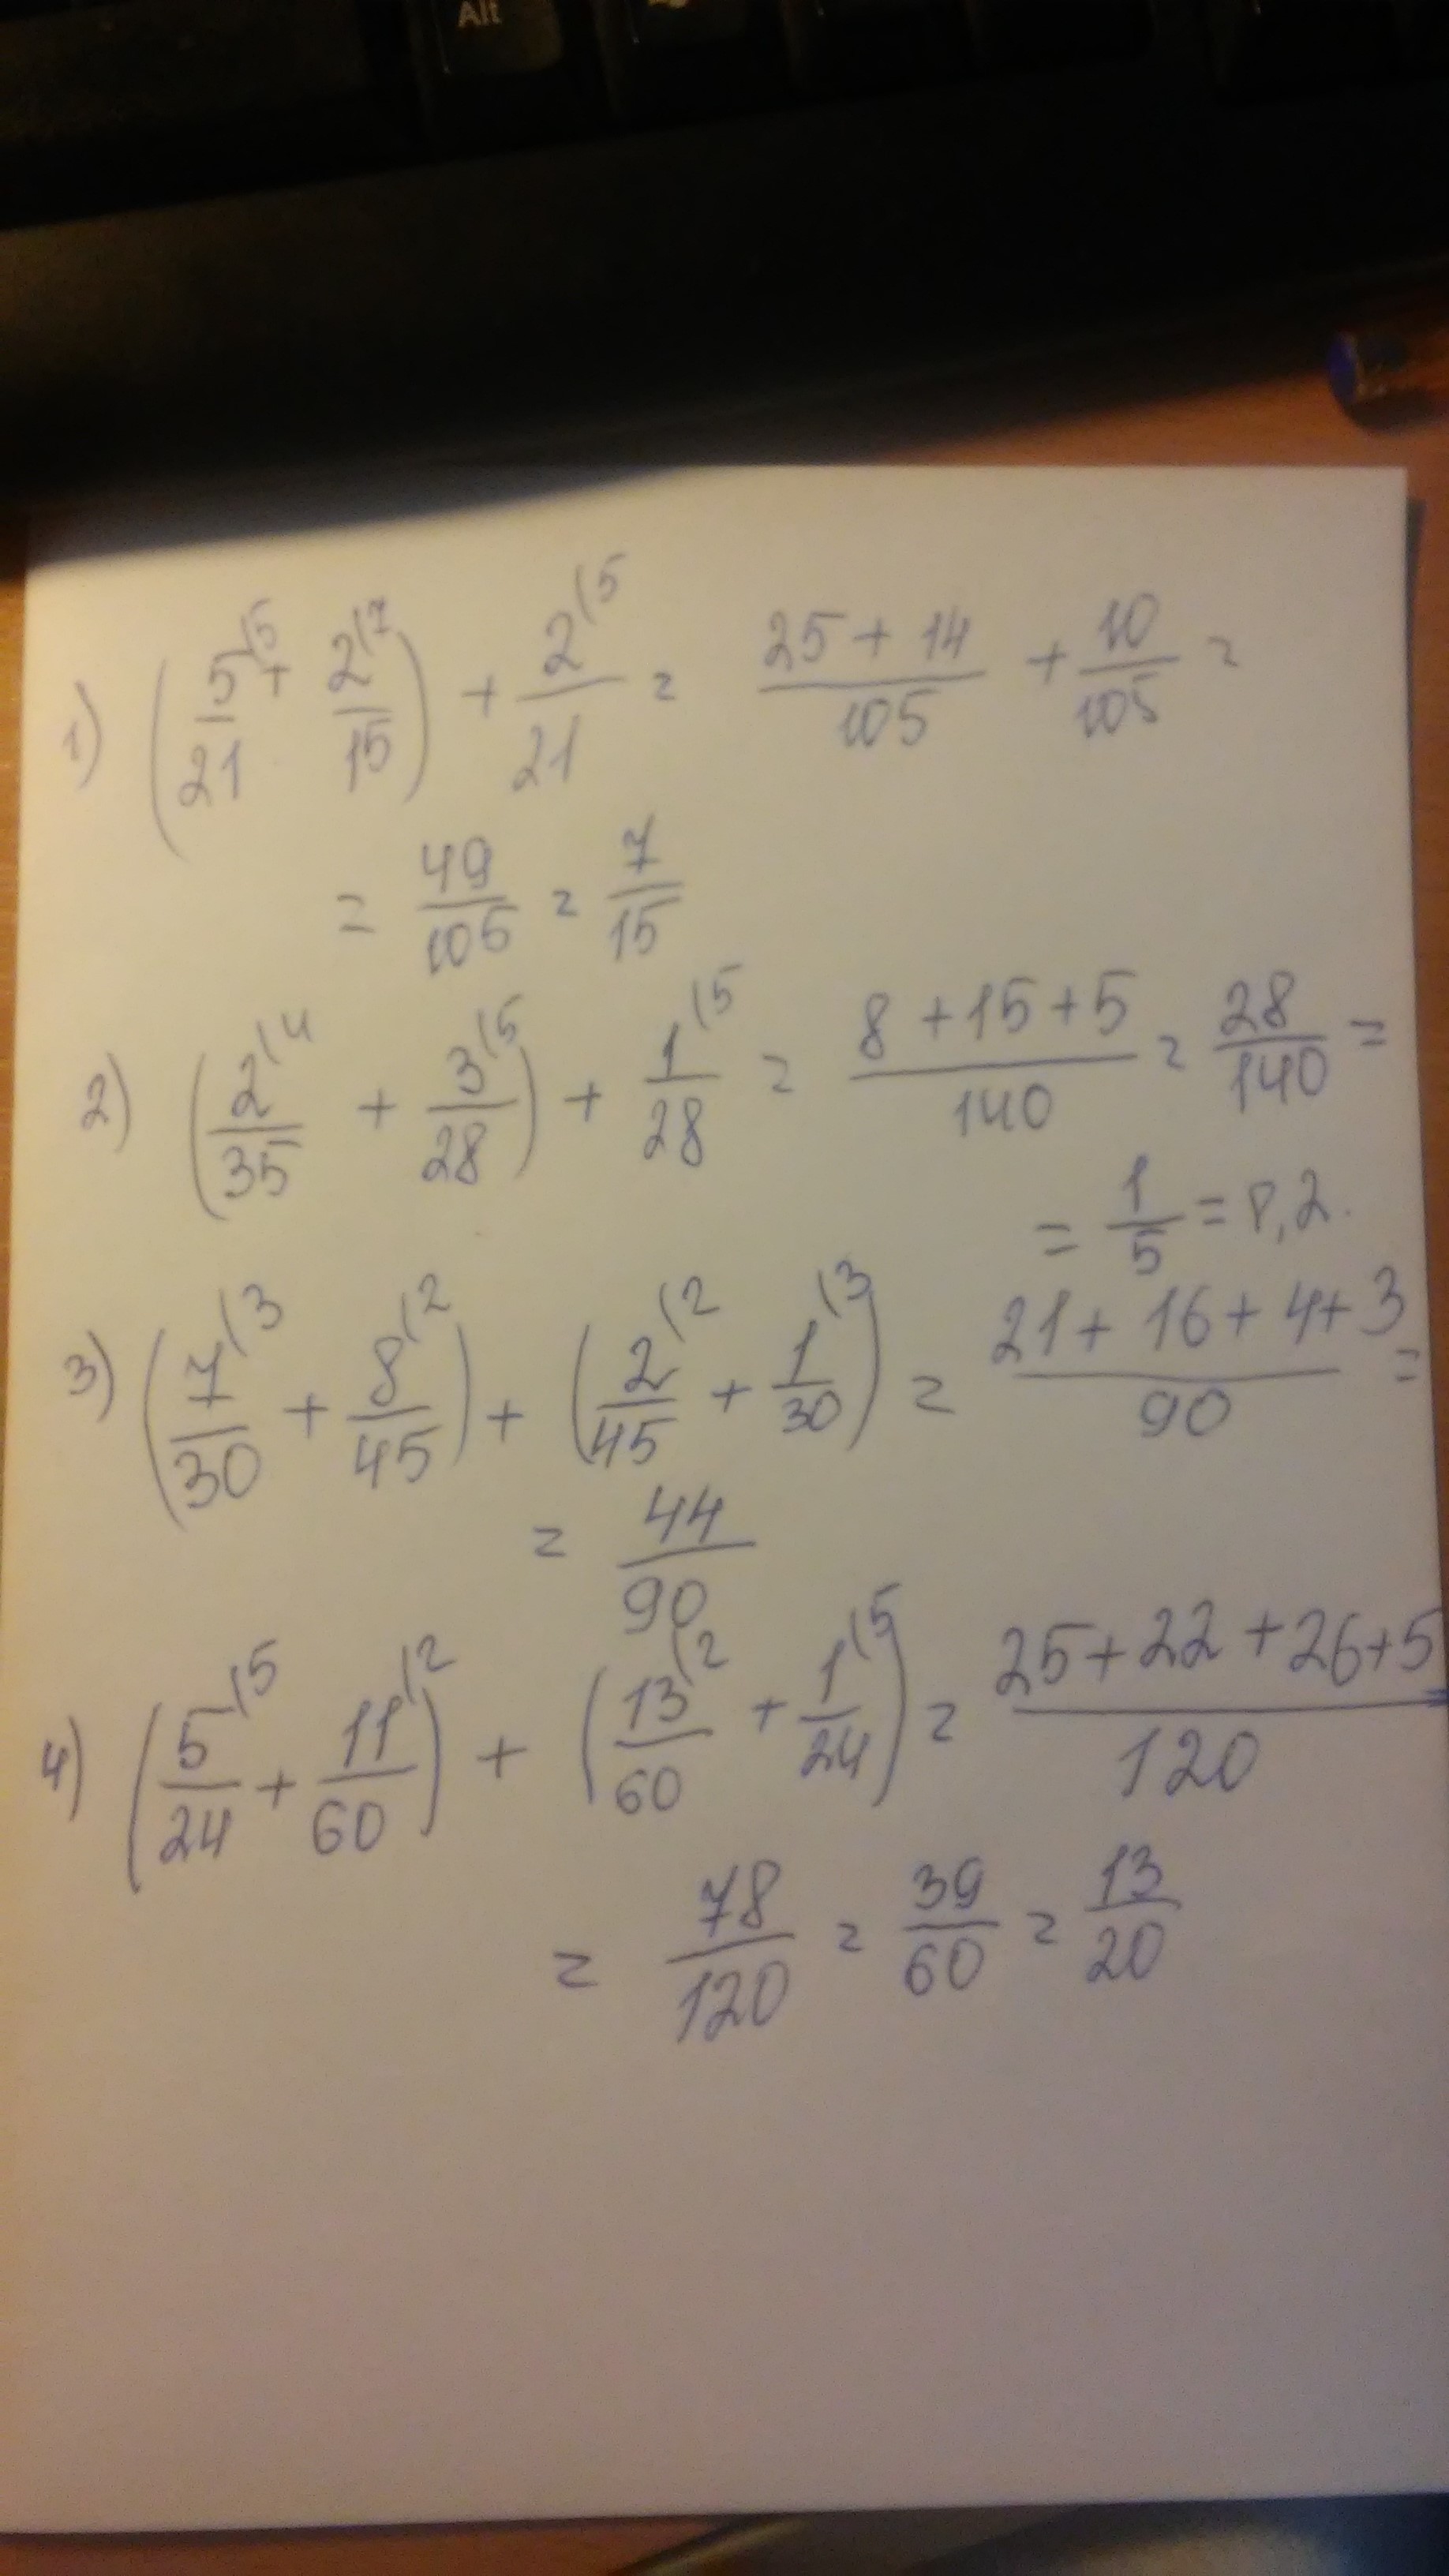 Alt
1) (5/21 (5 + 2/15 (7) + 2/21 (5 = (25 + 14)/105 + 10/105 =
= 49/105 = 7/15
2) (2/35 (4 + 3/28 (5) + 1/28 (5 = (8 + 15 + 5)/140 = 28/140 =
= 1/5 = 0,2.
3) (7/30 (3 + 8/45 (2) + (2/45 (2 + 1/30 (3) = (21 + 16 + 4 + 3)/90 =
= 44/90
4) (5/24 (5 + 11/60 (2) + (13/60 (2 + 1/24 (5) = (25 + 22 + 26 + 5)/120
= 78/120 = 39/60 = 13/20